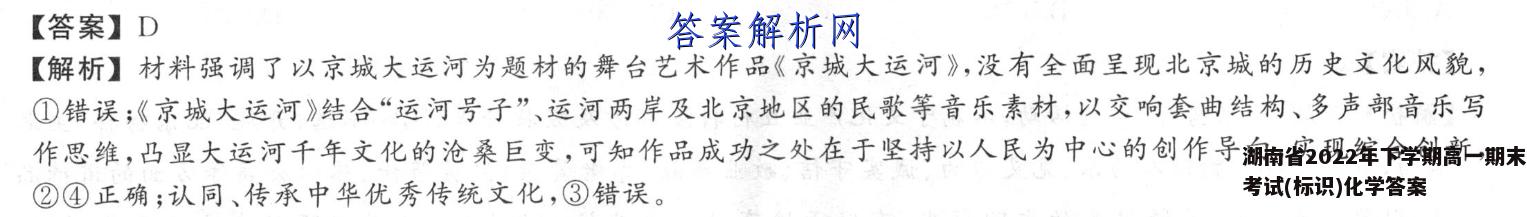 【答案】D
答案解析网
【解析】材料强调了以京城大运河为题材的舞台艺术作品《京城大运河》,没有全面呈现北京城的历史文化风貌,
①错误;《京城大运河》结合“运河号子”、运河两岸及北京地区的民歌等音乐素材,以交响套曲结构、多声部音乐写
作思维,凸显大运河千年文化的沧桑巨变,可知作品成功之处在于坚持以人民为中心的创作导向,实现综合创新,
②④正确;认同、传承中华优秀传统文化,③错误。
湖南省2022年下学期高一期末
考试(标识)化学答案